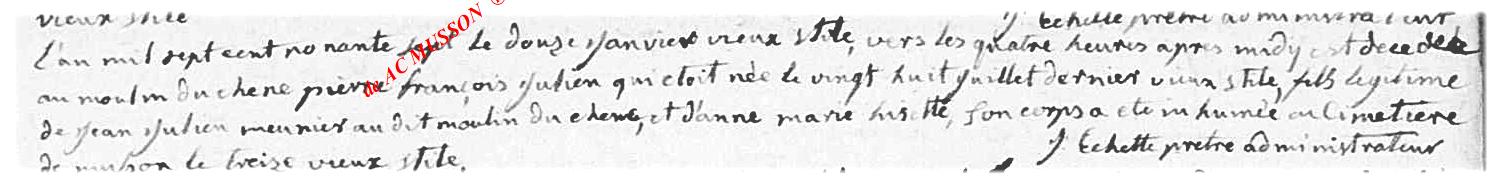 vieux stile J. Echette prêtre administrateur
l'an mil sept cent nonante sept le douze Janvier vieux stile, vers les quatre heures apres midy est decedé
au moulin du chene pierre françois Julien qui etoit née le vingt huit Juillet dernier vieux stile, fils legitime
de Jean Julien meunier au dit moulin du chene, et d'anne marie husette, son corps a ete inhumée au Cimetiere
de musson le treize vieux stile. J. Echette prêtre administrateur
de AC MUSSON ©